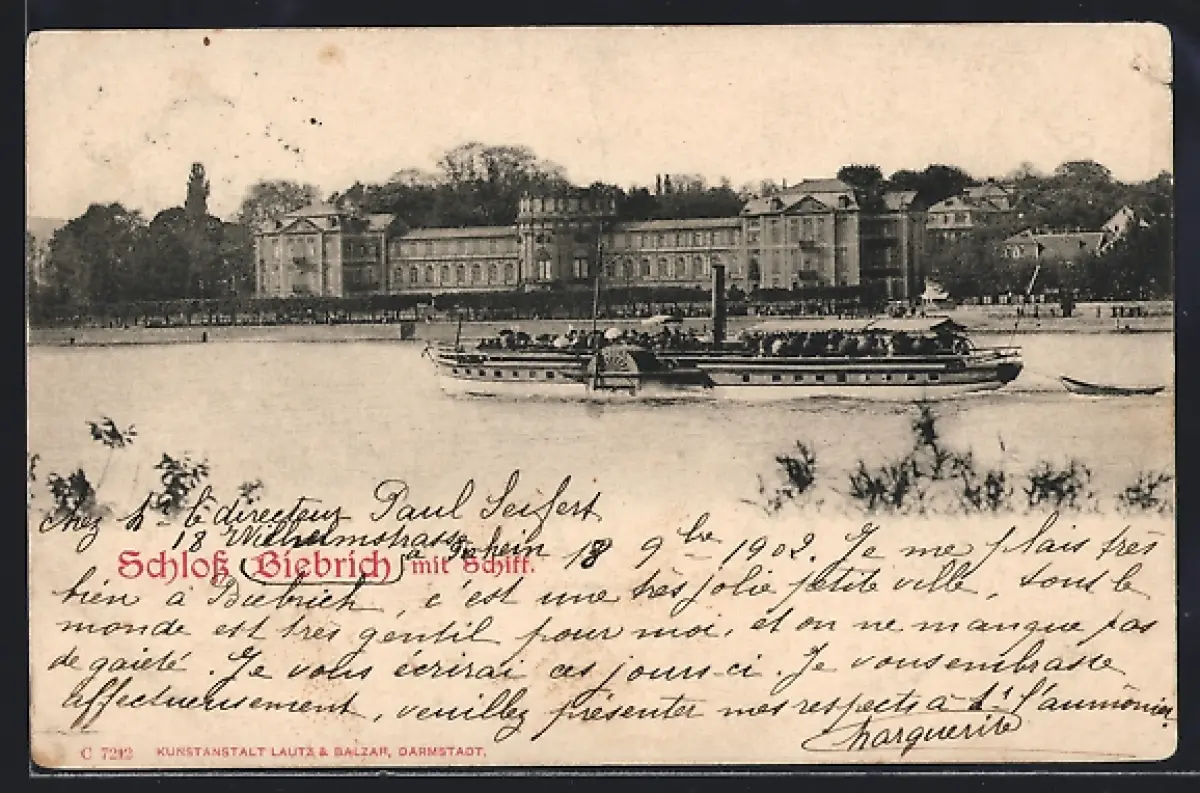 chez M. le directeur Paul Seifert
18 Wilhelmstrasse a. Rhein 18 9bre 1902. Je me plais très
Schloß Biebrich mit Schiff.
bien à Biebrich, c'est une très jolie petite ville, tout le
monde est très gentil pour moi, et on ne manque pas
de gaieté. Je vous écrirai ces jours-ci. Je vous embrasse
affectueusement, veuillez présenter mes respects à l'aumônier
Marguerite
C 7212 KUNSTANSTALT LAUTZ & BALZAR, DARMSTADT.